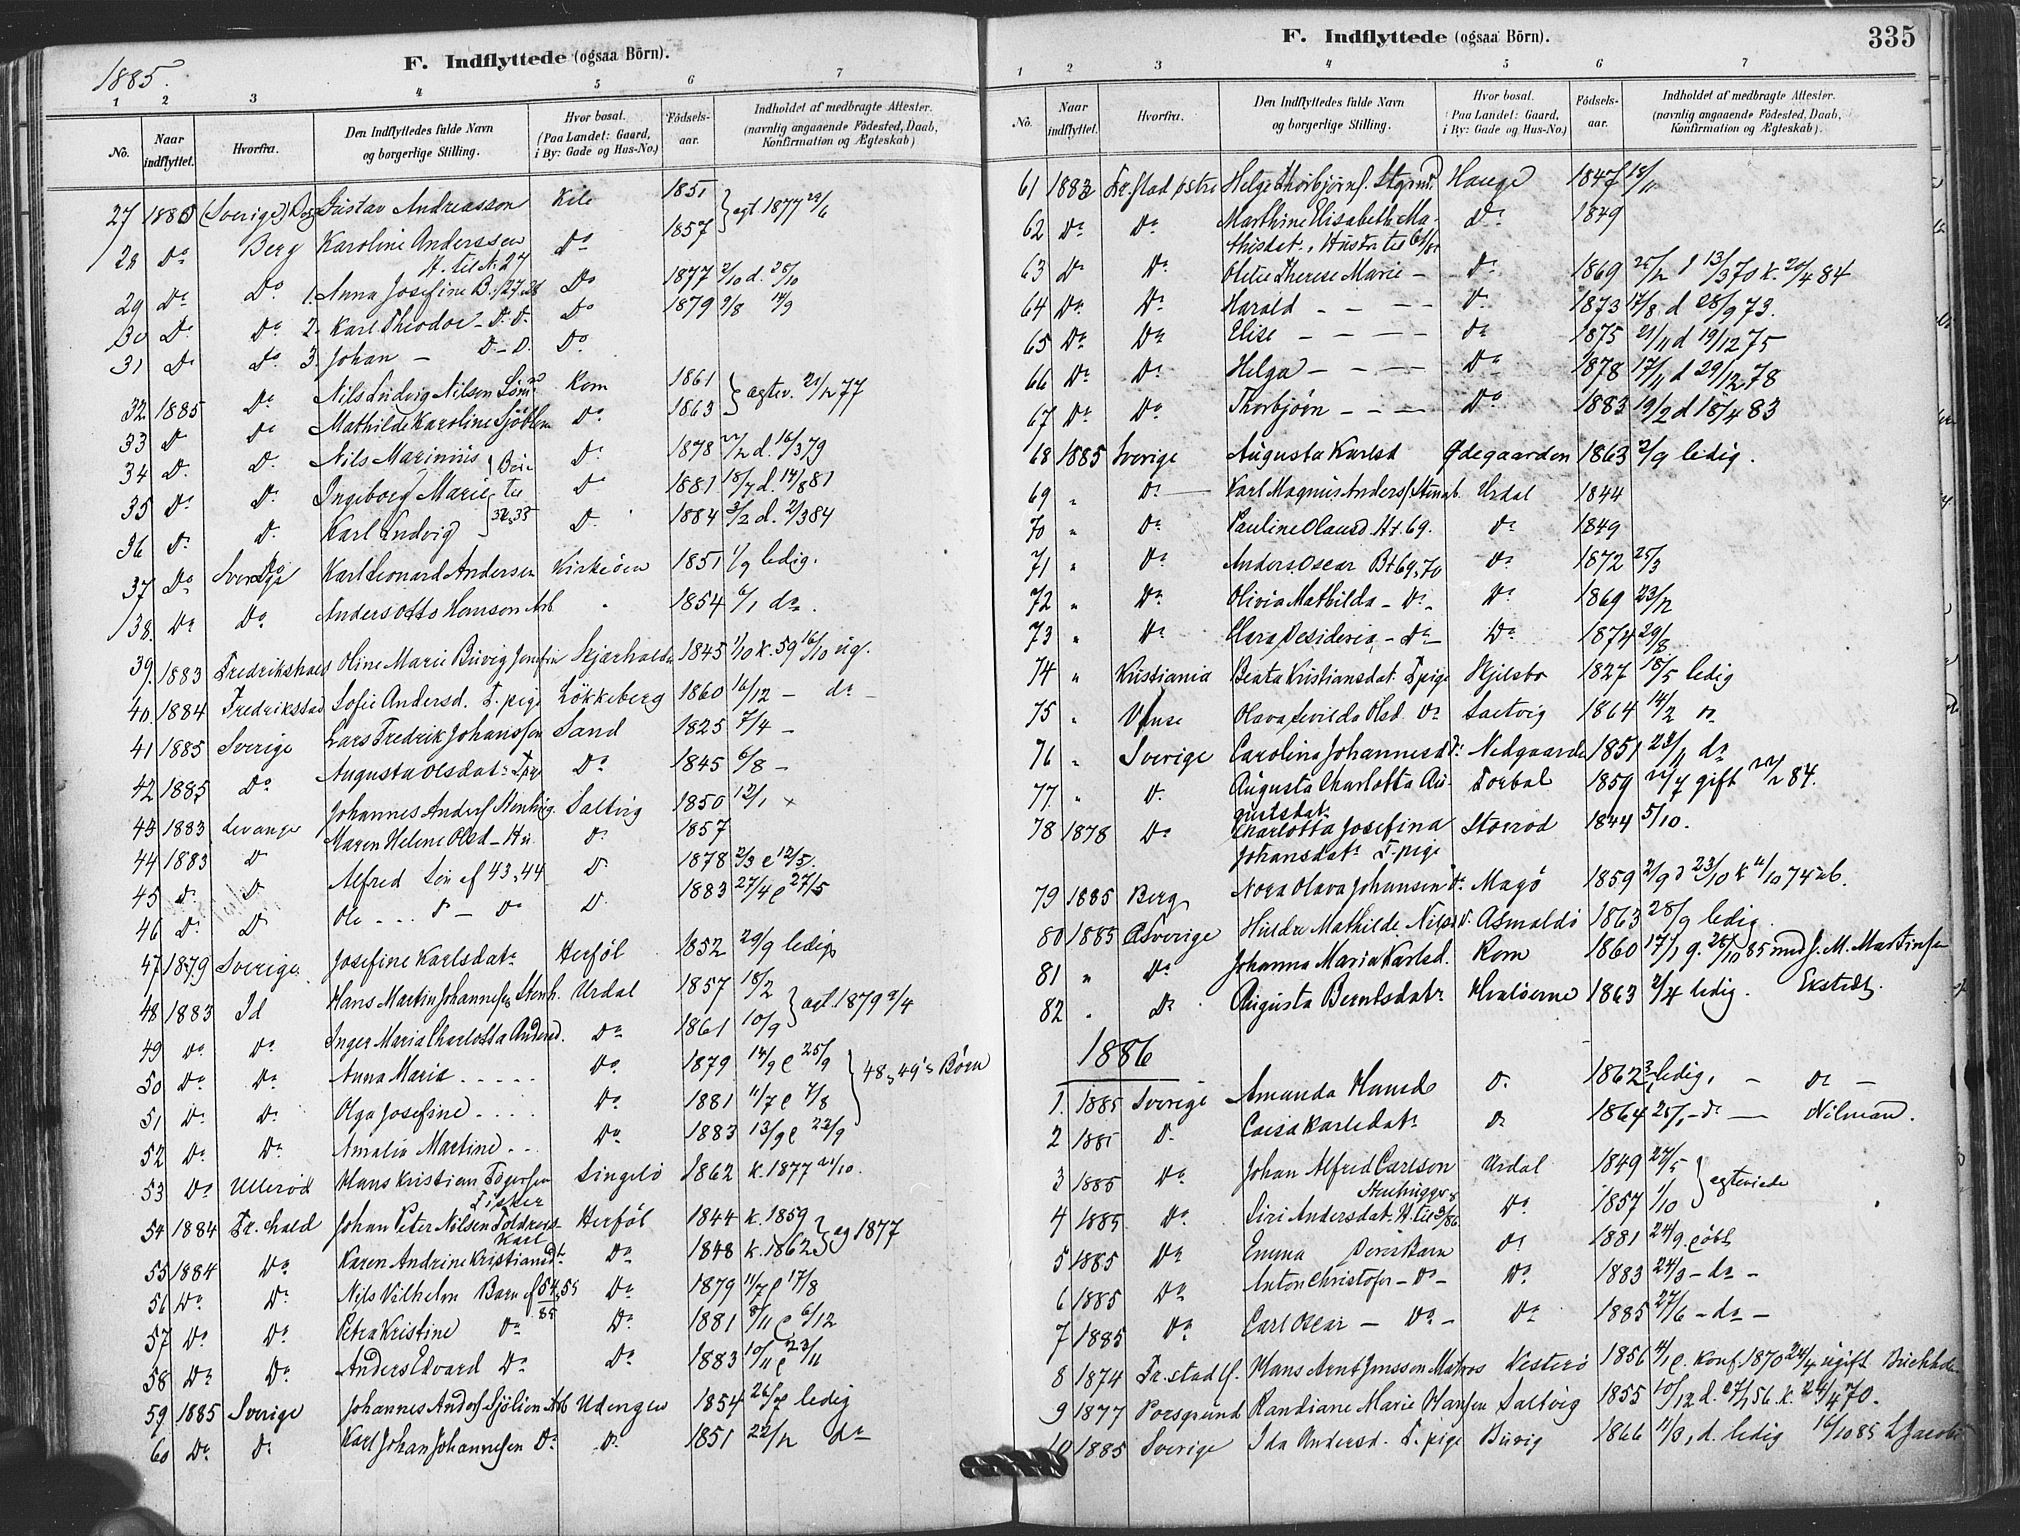 1885.
F. Indflyttede (ogsaa Börn).
1 2 3 4 5 6 7
No. Naar indflyttet. Hvorfra. Den Indflyttedes fulde Navn og borgerlige Stilling. Hvor bosat. (Paa Landet: Gaard, i By: Gade og Hus-No.) Födsels-aar. Indholdet af medbragte Attester. (navnlig angaaende Födested, Daab, Konfirmation og Ægteskab)
27 1885 (Sverige) Gustav Andreasson Kile 1851
28 Do Berg Karoline Anderssen Do 1857 } egt 1877
H. til No 27
29 Do Do 1. Anna Josefine B. 27 28 Do 1877 2/10 d. 28/10
30 Do Do 2. Karl Theodor - D. D. Do 1879 2/8 14/9
31 Do Do 3. Johan - D. - D. Do
32 1885 Do Nils Ludvig Nilsen Rom 1861
33 D Do Mathilde Karoline Sjöblom Do 1863 } egtev. 77
34 D. D. Nils Marinius } Börn Do 1878 d. 16/3 79
35 Do Do Ingiborg Marie } til D 1881 18/7 d. 14/8 81
36 D. D. Karl Ludvig } 32, 33 D. 1884 3/2 d. 2/3 84
37 Do Sverige Karl Leonard Andersen Kirkeöen 1851 1/9 ledig.
38. Do Do Anders Otto Hanson Arb " 1854 6/1 do.
39. 1883 Fredrikshald Oline Marie Buvig Skjærhalden 1845 1/10 K. 59 16/10 ug.
40. 1884 Fredrikstad Sofie Andersd. T. pige Lökkeberg 1860 16/12 - do -
41 1885 Sverige Lars Fredrik Johanssen Sand 1825 7/4 -
42 1885 Do Augusta Olsdatr T.pige Do 1845 6/8 -
43 1883 Levanger Johannes Anders Stenhug. Saltvig 1850 12/1 x
44 1883 D Maren Helene Olsd - Hu. D. 1857
45 D. D Alfred Sön af 43, 44 D. 1878 2/3 e 12/5.
46 D. D Ole - - - D - Do D. 1883 27/4 e 27/5
47 1879 Sverige. Josefine Karlsdatr Herföl 1852 29/9 ledig
48 1883 Id Hans Martin Johannesen Stenh. Urdal 1857 18/2
49 Do Do Inger Maria Charlotta Andersd. Do 1861 10/9 } egt 1879 2/4
50 Do Do Anna Maria - - - - - Do 1879 14/9 e 25/9
51 Do Do Olga Josefine - - - - Do 1881 11/7 e 7/8 } 48, 49's Börn
52 Do Do Amalia Martine - - Do 1883 13/9 e 22/9
53 Do Ulleröd Hans Kristian Fisker Singelö 1862 K. 1877 21/10.
54 1884 Fr. hald Johan Peter Nilsen Toldroers Karl Herföl 1844 K. 1859
55 1884 Do Karen Andrine Kristiansdt. Do 1848 K. 1862 } eg 1877
56 Do Do Nils Vilhelm Barn af 54, 55 Do 1879 11/7 e 17/8
57 Do Do Petra Kristine Do Do 1881 8/11 e 6/12
58 Do Do Anders Edvard Do Do 1883 10/11 e 23/11
59 1885 Sverige Johannes Anders Sjölien Arb Udengen 1854 26/8 ledig
60 Do Do Karl Johan Johannesen Do Do 1851 22/12 do
F. Indflyttede (ogsaa Börn). 335
1 2 3 4 5 6 7
No. Naar indflyttet. Hvorfra. Den Indflyttedes fulde Navn og borgerlige Stilling. Hvor bosat. (Paa Landet: Gaard, i By: Gade og Hus-No.) Födsels-aar. Indholdet af medbragte Attester. (navnlig angaaende Födested, Daab, Konfirmation og Ægteskab).
61 1883 Fr.stad östre Helge Thorbjörns. Styrm. Hauge 1847 18/11
62 Do Do Marthine Elisabeth Ma- Do 1849
thisdet., Hustru til 61
63 D Do Oletée Therese Marie - Do 1869 d 13/3 70 K. 20/4 84
64 Do Do Harald - - - - D. 1873 17/8 d 28/9 73.
65 Do Do Elise - - - - Do 1875 21/11 d 19/12 75
66 Do Do Helga - - - - Do 1878 17/11 d 29/12 78
67 Do Do Thorbjörn - - - Do 1883 19/2 d 18/4 83
68 1885 Sverige Augusta Karlsd Ødegaarden 1863 2/9 ledig.
69 " Do Karl Magnus Anders. Stenab. Urdal 1844
70 " Do Pauline Olausd. H. 69. Do 1849
71 " Do Anders Oscar B. 69, 70 Do 1872 25/3
72 " Do Olivia Mathilda - Do - Do 1869 23/12
73 " Do Clara Desideria - Do - Do 1874 29/8
74 " Kristiania Beata Kristiansdat. T.pige Kjilsbo 1827 18/5 ledig
75 " Olava Sevilda Olsd. Do Saltvig 1864 14/2 Do
76 " Sverige Carolina Johannesd D. Nedgaarden 1851 23/11 do
77. " D. Augusta Charlotta Au- Torbal 1859 gift 84.
gustsdat.
78 1878 Do Charlotta Josefina Storröd 1844 5/10.
Johansdatr T. pige
79 1885 Berg Nora Olava Johansen Do Magö 1859 2/9 d 23/10 K 11/10 74 ub.
80 1885 Sverige Hulda Mathilde Nilsd D. Asmalö 1863 28/9 ledig
81 " Do Johanna Maria Karlsd. Rom 1860 17/1 g. 26/10 85 med J. M. Martinsen
82 " Do Augusta Berntsdatr Hvalöerne 1863 2/4 ledig. Ekstedt.
1886
1. 1885 Sverige Amanda Hansd D. 1862 ledig, - do -
2 1885 D. Caisa Karlsdatr Do 1864 25/1 - do - Nilman.
3 1885 Do Johan Alfred Carlson Urdal 1849 24/5
Stenhugger
4 1885 Do Siri Andersdat. H. til 3/86 Do 1857 1/10 } egteviede
5 1885 Do Emma Deres Barn Do 1881 24/9. döbt
6 1885 Do Anton Christofer - Do - Do 1883 24/3 - do -
7 1885 Do Carl Oscar - Do - Do 1885 27/6 - do -
8 1874 Fr.stad Hans Arnt Jensson Matros Vesterö 1856 4/1 e. Konf. 1870 24/4 ugift
9 1877 Porsgrund Randiane Marie Hansen Saltvig 1855 10/12 d. 27/1 56. K. 24/4 70.
10 1885 Sverige Ida Andersd. T. pige Buvig 1866 11/8, d. ledig 16/10 85